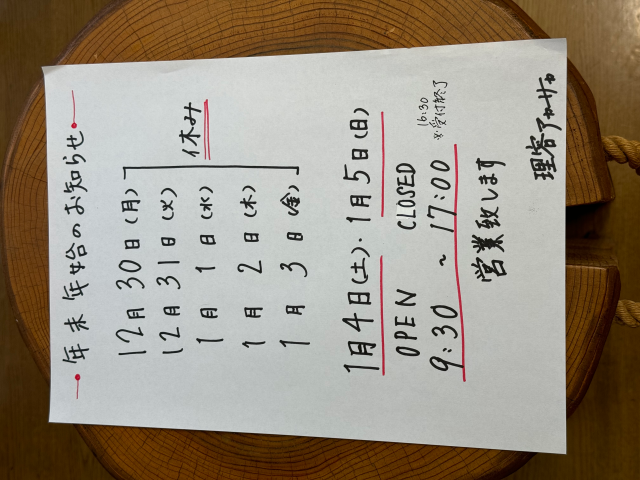 年末年始のお知らせ
12月30日(月)
12月31日(火)
1月1日(水)
1月2日(木)
1月3日(金)
休み
1月4日(土)・1月5日(日)
OPEN CLOSED
9:30 ~ 17:00
16:30
※受付終了
営業致します
理容アカサカ